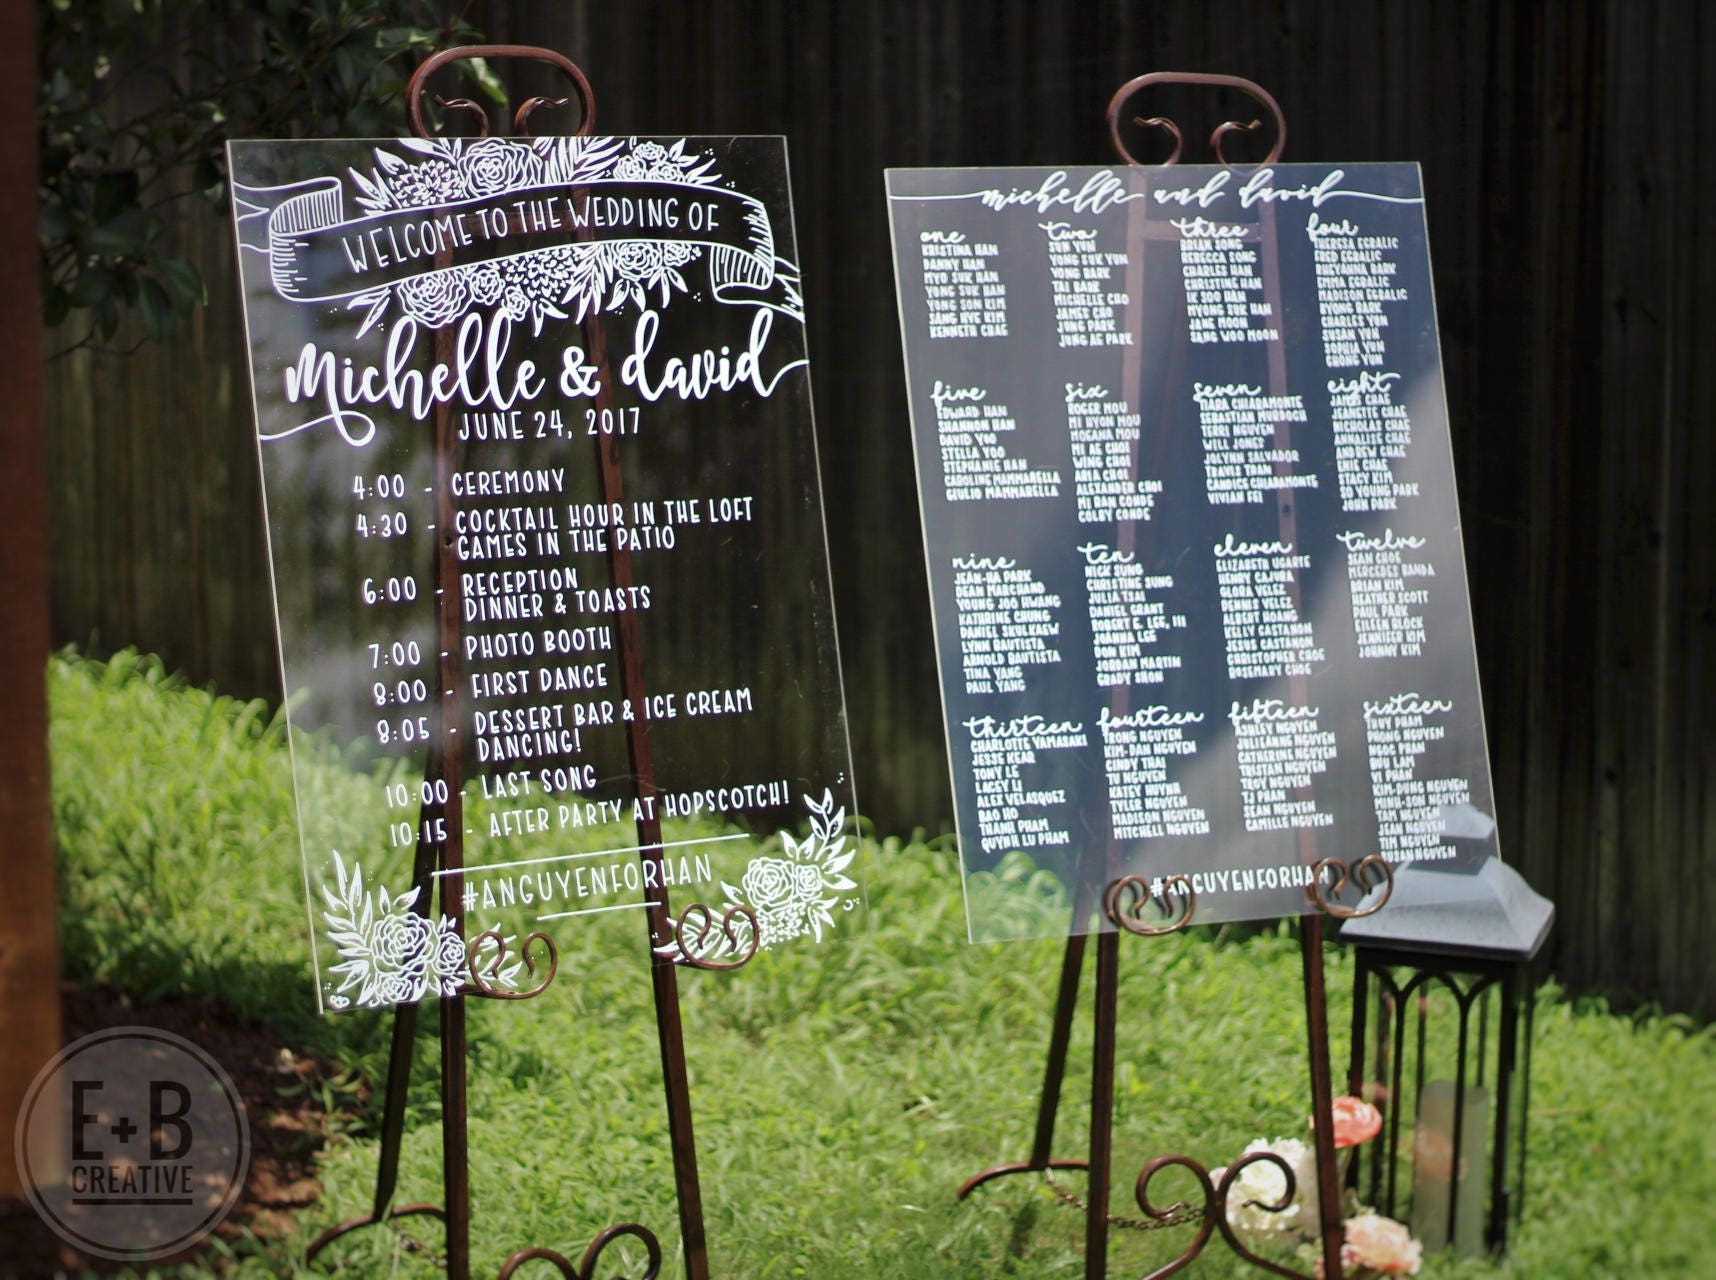 WELCOME TO THE WEDDING OF
Michelle & david
JUNE 24, 2017
4:00 - CEREMONY
4:30 - COCKTAIL HOUR IN THE LOFT
GAMES IN THE PATIO
6:00 - RECEPTION
DINNER & TOASTS
7:00 - PHOTO BOOTH
8:00 - FIRST DANCE
8:05 - DESSERT BAR & ICE CREAM
DANCING!
10:00 - LAST SONG
10:15 - AFTER PARTY AT HOPSCOTCH!
#ANGUYENFORHAN
michelle and david
one
KRISTINA HAN
DANNY HAN
MYO SUK HAN
YONG SUK HAN
YONG SON KIM
SANG HYE KIM
KENNETH CHAE
two
SUN YUN
YONG SUK YUN
YONG BARK
TAI BARK
MICHELLE CHO
JAMES CHO
JUNG PARK
JUNG AE PARK
three
BRIAN SONG
REBECCA SONG
CHARLES HAN
CHRISTINE HAN
IK SOO HAN
MYONG SUK HAN
JANE MOON
SANG WOO MOON
four
THERESA EGBALIC
FRED EGBALIC
RHEYANNA BARK
EMMA EGBALIC
MADISON EGBALIC
BYONG BARK
CHARLES YUN
SUSAN YUN
SOPHIA YUN
CHONG YUN
five
EDWARD HAN
SHANNON HAN
DAVID YOO
STELLA YOO
STEPHANIE HAN
CAROLINE MAMMARELLA
GIULIO MAMMARELLA
six
ROGER MOU
MI HYON MOU
MOEANA MOU
MI AE CHOI
WING CHOI
ARIA CHOI
ALEXANDER CHOI
MI RAN CONDE
COLBY CONDE
seven
TIARA CHIARAMONTE
SEBASTIAN MURDOCH
TERRI NGUYEN
WILL JONES
JOLYNN SALVADOR
TRAVIS TRAN
CANDICE CHIARAMONTE
VIVIAN FEI
eight
JAMES CHAE
JEANETTE CHAE
NICHOLAS CHAE
ANNALISE CHAE
ANDREW CHAE
ENIE CHAE
STACY KIM
SO YOUNG PARK
JOHN PARK
nine
JEAN-HA PARK
DEAN MARCHAND
YOUNG JOO HWANG
KATHRINE CHUNG
DANIEL SKULKAEW
LYNN BAUTISTA
ARNOLD BAUTISTA
TINA YANG
PAUL YANG
ten
NICK SUNG
CHRISTINE SUNG
JULIA TSAI
DANIEL GRANT
ROBERT E. LEE, III
JOANNA LEE
DON KIM
JORDAN MARTIN
GRADY SHON
eleven
ELIZABETH UGARTE
HENRY CAJURA
GLORA VELEZ
DENNIS VELEZ
ALBERT HOANG
KELLY CASTANON
JESUS CASTANON
CHRISTOPHER CHOE
ROSEMARY CHOE
twelve
SEAN CHOE
MERCEDES BANDA
BRIAN KIM
HEATHER SCOTT
PAUL PARK
EILEEN BLOCK
JENNIFER KIM
JOHNNY KIM
thirteen
CHARLOTTE YAMAZAKI
JESSE KEAR
TONY LE
LACEY LI
ALEX VELASQUEZ
BAO HO
THANH PHAM
QUYNH LU PHAM
fourteen
TRONG NGUYEN
KIM-DAN NGUYEN
CINDY THAI
TU NGUYEN
KATEY HUYNH
TYLER NGUYEN
MADISON NGUYEN
MITCHELL NGUYEN
fifteen
ASHLEY NGUYEN
JULIEANNE NGUYEN
CATHERINE NGUYEN
TRISTAN NGUYEN
TROY NGUYEN
TJ PHAN
SEAN NGUYEN
CAMILLE NGUYEN
sixteen
THUY PHAM
PHONG NGUYEN
NGOC PHAN
BUU LAM
VI PHAN
KIM-DUNG NGUYEN
MINH-SON NGUYEN
TAM NGUYEN
JEAN NGUYEN
TIM NGUYEN
SUSAN NGUYEN
#ANGUYENFORHAN
E+B
CREATIVE